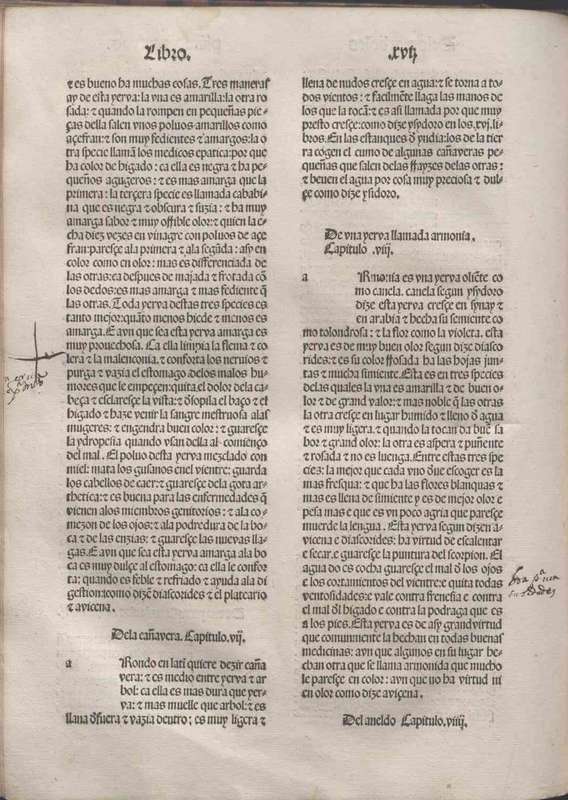 Libro.
.xvij.
⁊ es bueno ha muchas cosas. Tres maneras
ay de esta yerva: la vna es amarilla: la otra ro
sada: ⁊ quando la rompen en pequeñas pie-
ças della salen vnos poluos amarillos como
açefran: ⁊ son muy fedientes ⁊ amargos: la o
tra specie llamã los medicos epatica: por que
ha color de higado: ca ella es negra ⁊ ha pe-
queños agugeros: ⁊ es mas amarga que la
primera: la terçera specie es llamada cabali-
na que es negra ⁊ obscura ⁊ suzia: ⁊ ha muy
amarga sabor ⁊ muy offible olor: ⁊ quien la e-
cha diez vezes en vinagre con poluos de açe
fran: paresçe ala primera ⁊ ala segũda: asy en
color como en olor: mas es differenciada de
las otras: ca despues de majada ⁊ frotada cõ
los dedos: es mas amarga ⁊ mas fediente q̃
las otras. Toda yerva destas tres species es
tanto mejor: quãto menos hiede ⁊ menos es
amarga. E ayn que sea esta yerva amarga es
muy prouechosa. Ca ella limpia la flema ⁊ co
lera ⁊ la malenconia: ⁊ conforta los neruios ⁊
purga ⁊ vazia el estomago. delos malos hu-
mores que le empeçen: quita el dolor dela ca-
beça ⁊ esclaresce la vista: ⁊ desopila el baço ⁊ el
higado ⁊ haze venir la sangre mestruosa alas
mugeres: ⁊ engendra buen color: ⁊ guaresçe
la ydropesia quando vsan della al comienço
del mal. El poluo desta yerva mezclado con
miel: mata los gusanos enel vientre: guarda
los cabellos de caer: ⁊ guaresçe dela gota ar-
thetica: ⁊ es buena para las enfermedades q̃
vienen alos miembros genitorios: ⁊ ala co-
mezon de los ojos: ⁊ ala podredura de la bo-
ca ⁊ de las enzias: ⁊ guaresçe las nuevas lla-
gas. E ayn que sea esta yerva amarga ala bo
ca es muy dulçe al estomago: ca ella le confor
ta: quando es feble ⁊ refriado ⁊ ayuda ala di
gestion: como dizẽ diascorides ⁊ el pleteario
⁊ aviçena.
Dela cañavera. Capitulo. vij.
a Rondo en latĩ quiere dezir caña
vera: ⁊ es medio entre yerva ⁊ ar
bol: ca ella es mas dura que yer-
va: ⁊ mas muelle que arbol: ⁊ es
llana defuera ⁊ vazia dentro: es muy ligera ⁊
llena de nudos cresçe en agua: ⁊ se torna a to-
dos vientos: ⁊ facilmẽte llaga las manos de
los que la tocã: ⁊ es asi llamada por que muy
presto cresçe: como dize ysydoro en los. xvj. li-
bros. En las estanques đ yudia: los de la tier
ra cogen el çumo de algunas cañaveras pe-
queñas que salen delas rrayzes delas otras:
⁊ beuen el agua por cosa muy preciosa ⁊ dul-
çe como dize ysidoro.
De vna yerva llamada armonia.
Capitulo .viij.
a Rmonia es vna yerva oliẽte co
mo canela. canela segun ysydoro
dize esta yerva cresçe en synay ⁊
en arabia ⁊ hecha su semiente co
mo tolondrosa: ⁊ la flor como la violeta. esta
yerva es de muy buen olor segun dize diasco
rides: ⁊ es su color rrosada ha las hojas jun-
tas ⁊ mucha simiente. Esta es en tres species
delas quales la vna es amarilla ⁊ de buen o-
lor ⁊ de grand valor: ⁊ mas noble q̃ las otras
la otra cresçe en lugar humido ⁊ lleno đ agua
⁊ es muy ligera. ⁊ quando la tocan da buẽ sa
bor ⁊ grand olor: la otra es aspera ⁊ puñente
⁊ rosada ⁊ no es luenga. Entre estas tres spe
cies: la mejor que cada vno deue escoger es la
mas fresqua: ⁊ que ha las flores blanquas ⁊
mas es llena de simiente y es de mejor olor e
pesa mas e que es vn poco agria que paresçe
muerde la lengua. Esta yerva segun dizen a-
viçena e diascorides: ha virtud de escalentar
e secar. e guaresçe la puntura del scorpion. El
agua do es cocha guaresçe el mal đ los ojos
e los cortamientos del vientre: e quita todas
ventosidades: e vale contra frenesia e contra
el mal đl higado e contra la podraga que es
a los pies. Esta yerva es de asy grand virtud
que comunmente la hechan en todas buenas
medicinas: ayn que algunos en su lugar he-
chan otra que se llama armonida que mucho
le paresçe en color: ayn que no ha virtud ni
en olor como dize aviçena.
Del aneldo Capitulo. viiij.